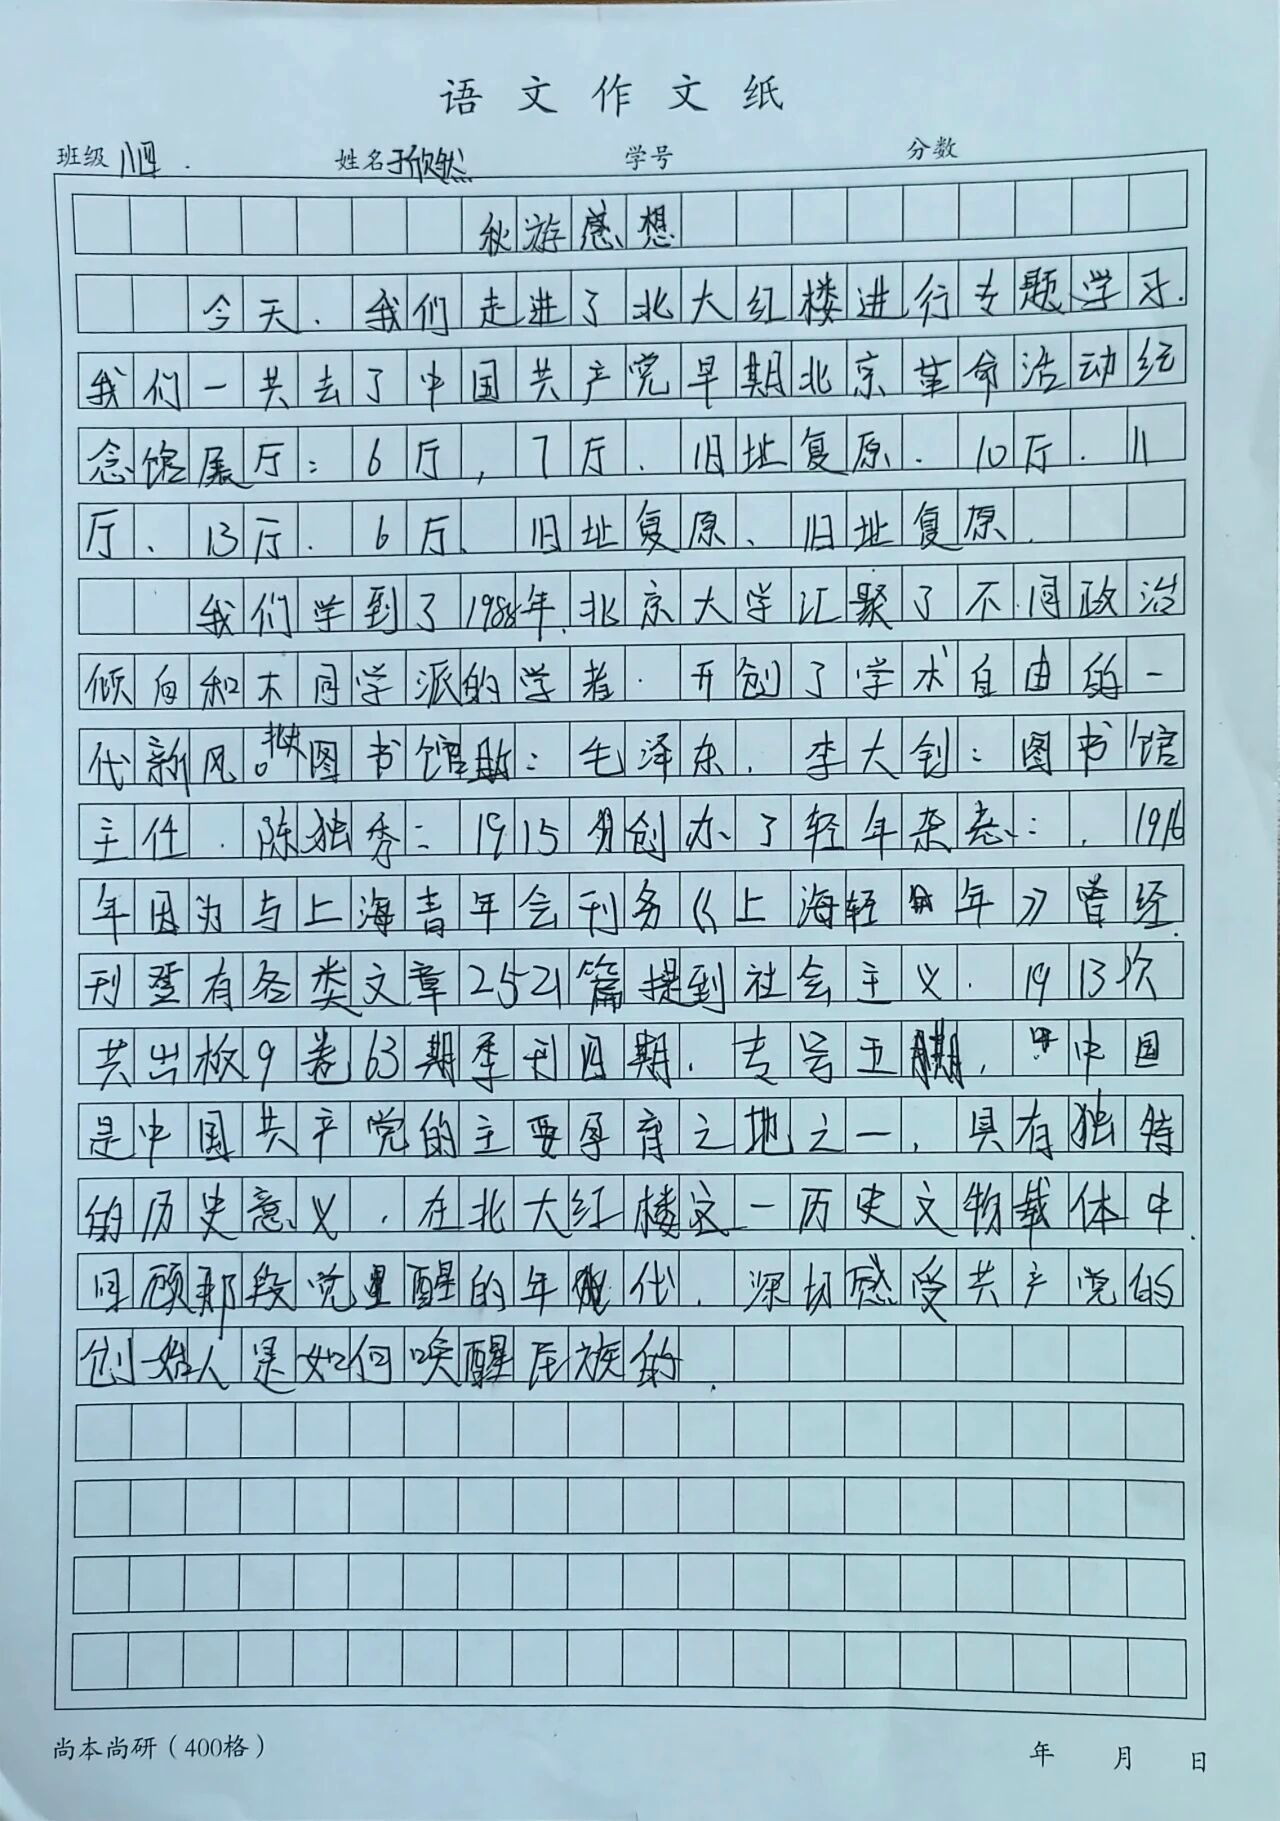 语文作文纸
班级 八四. 姓名于欣然 学号 分数
秋游感想
今天.我们走进了北大红楼进行专题学习.
我们一共去了中国共产党早期北京革命活动纪
念馆展厅:6厅,7厅.旧址复原.10厅.11
厅、13厅.6厅、旧址复原、旧址复原.
我们学到了1988年.北京大学汇聚了不同政治
倾向和不同学派的学者.开创了学术自由的一
代新风。图书馆:毛泽东.李大钊:图书馆
主任.陈独秀:1915 创办了轻年杂志:.1916
年因为与上海青年会刊务《上海轻年》曾经.
刊登有各类文章2521篇提到社会主义.1913次
共出板9卷63期季刊四期.专号五期.中国
是中国共产党的主要孕育之地之一.具有独特
的历史意义.在北大红楼这一历史文物载体中.
回顾那段觉醒的年代.深切感受共产党的
创始人是如何唤醒民族的.
尚本尚研(400格) 年 月 日